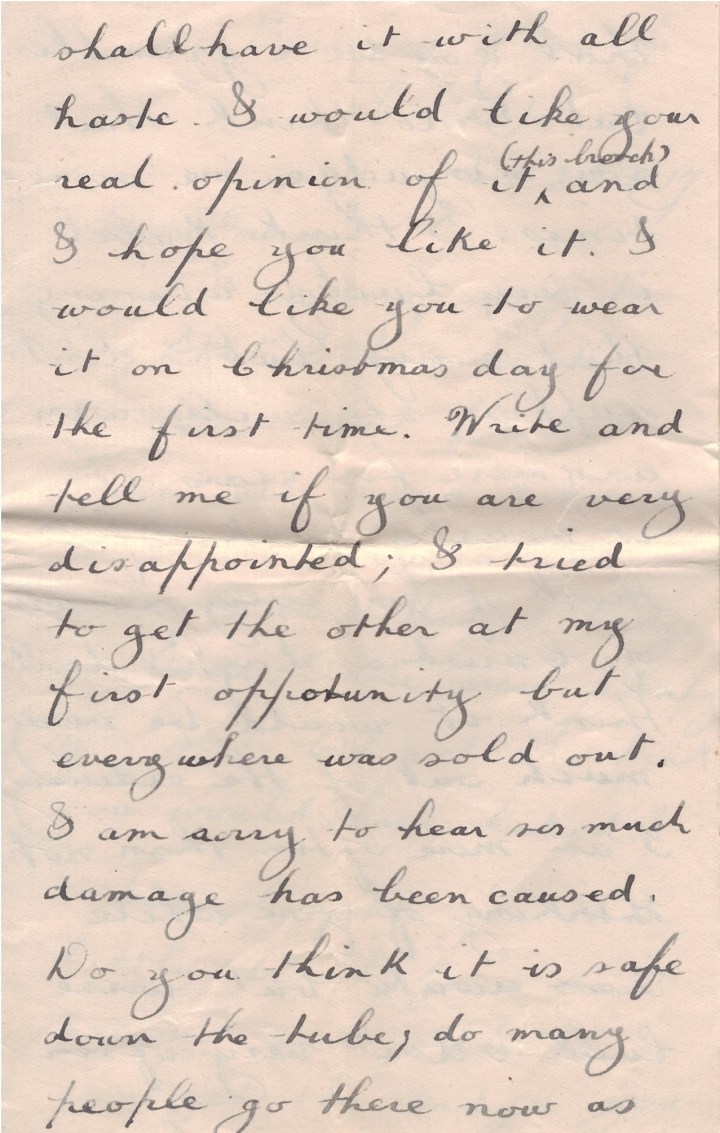 shall have it with all
haste. I would like your
real opinion of it (this brooch) and
I hope you like it. I
would like you to wear
it on Christmas day for
the first time. Write and
tell me if you are very
disappointed; I tried
to get the other at my
first oppotunity but
everywhere was sold out.
I am sorry to hear so much
damage has been caused.
Do you think it is safe
down the tube; do many
people go there now as